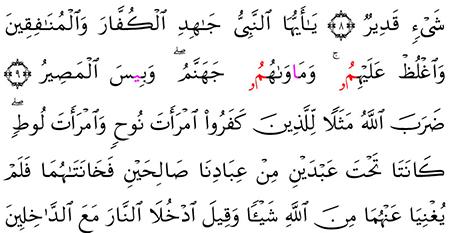 شَىْءٍ قَدِيرٌ ۝٨ يَـٰٓأَيُّهَا ٱلنَّبِىُّ جَـٰهِدِ ٱلْكُفَّارَ وَٱلْمُنَـٰفِقِينَ
وَٱغْلُظْ عَلَيْهِمُۥ ۚ وَمَاوَىٰهُمُۥ جَهَنَّمُ ۖ وَبِيسَ ٱلْمَصِيرُ ۝٩
ضَرَبَ ٱللَّهُ مَثَلًا لِّلَّذِينَ كَفَرُوا۟ ٱمْرَأَتَ نُوحٍ وَٱمْرَأَتَ لُوطٍ ۖ
كَانَتَا تَحْتَ عَبْدَيْنِ مِنْ عِبَادِنَا صَـٰلِحَيْنِ فَخَانَتَاهُمَا فَلَمْ
يُغْنِيَا عَنْهُمَا مِنَ ٱللَّهِ شَيْـًٔا وَقِيلَ ٱدْخُلَا ٱلنَّارَ مَعَ ٱلدَّٰخِلِينَ